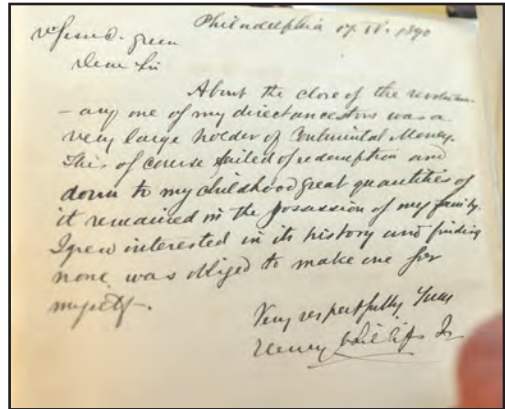 Philadelphia 17. IV. 1890
Jesse C. Green
Dear Sir
About the close of the revolution
- ary one of my direct ancestors was a
very large holder of Continental Money.
This of course failed of redemption and
down to my childhood great quantities of
it remained in the possession of my family.
I grew interested in its history and finding
none was obliged to make one for
myself.
Very respectfully Yours
Henry Phillips Jr